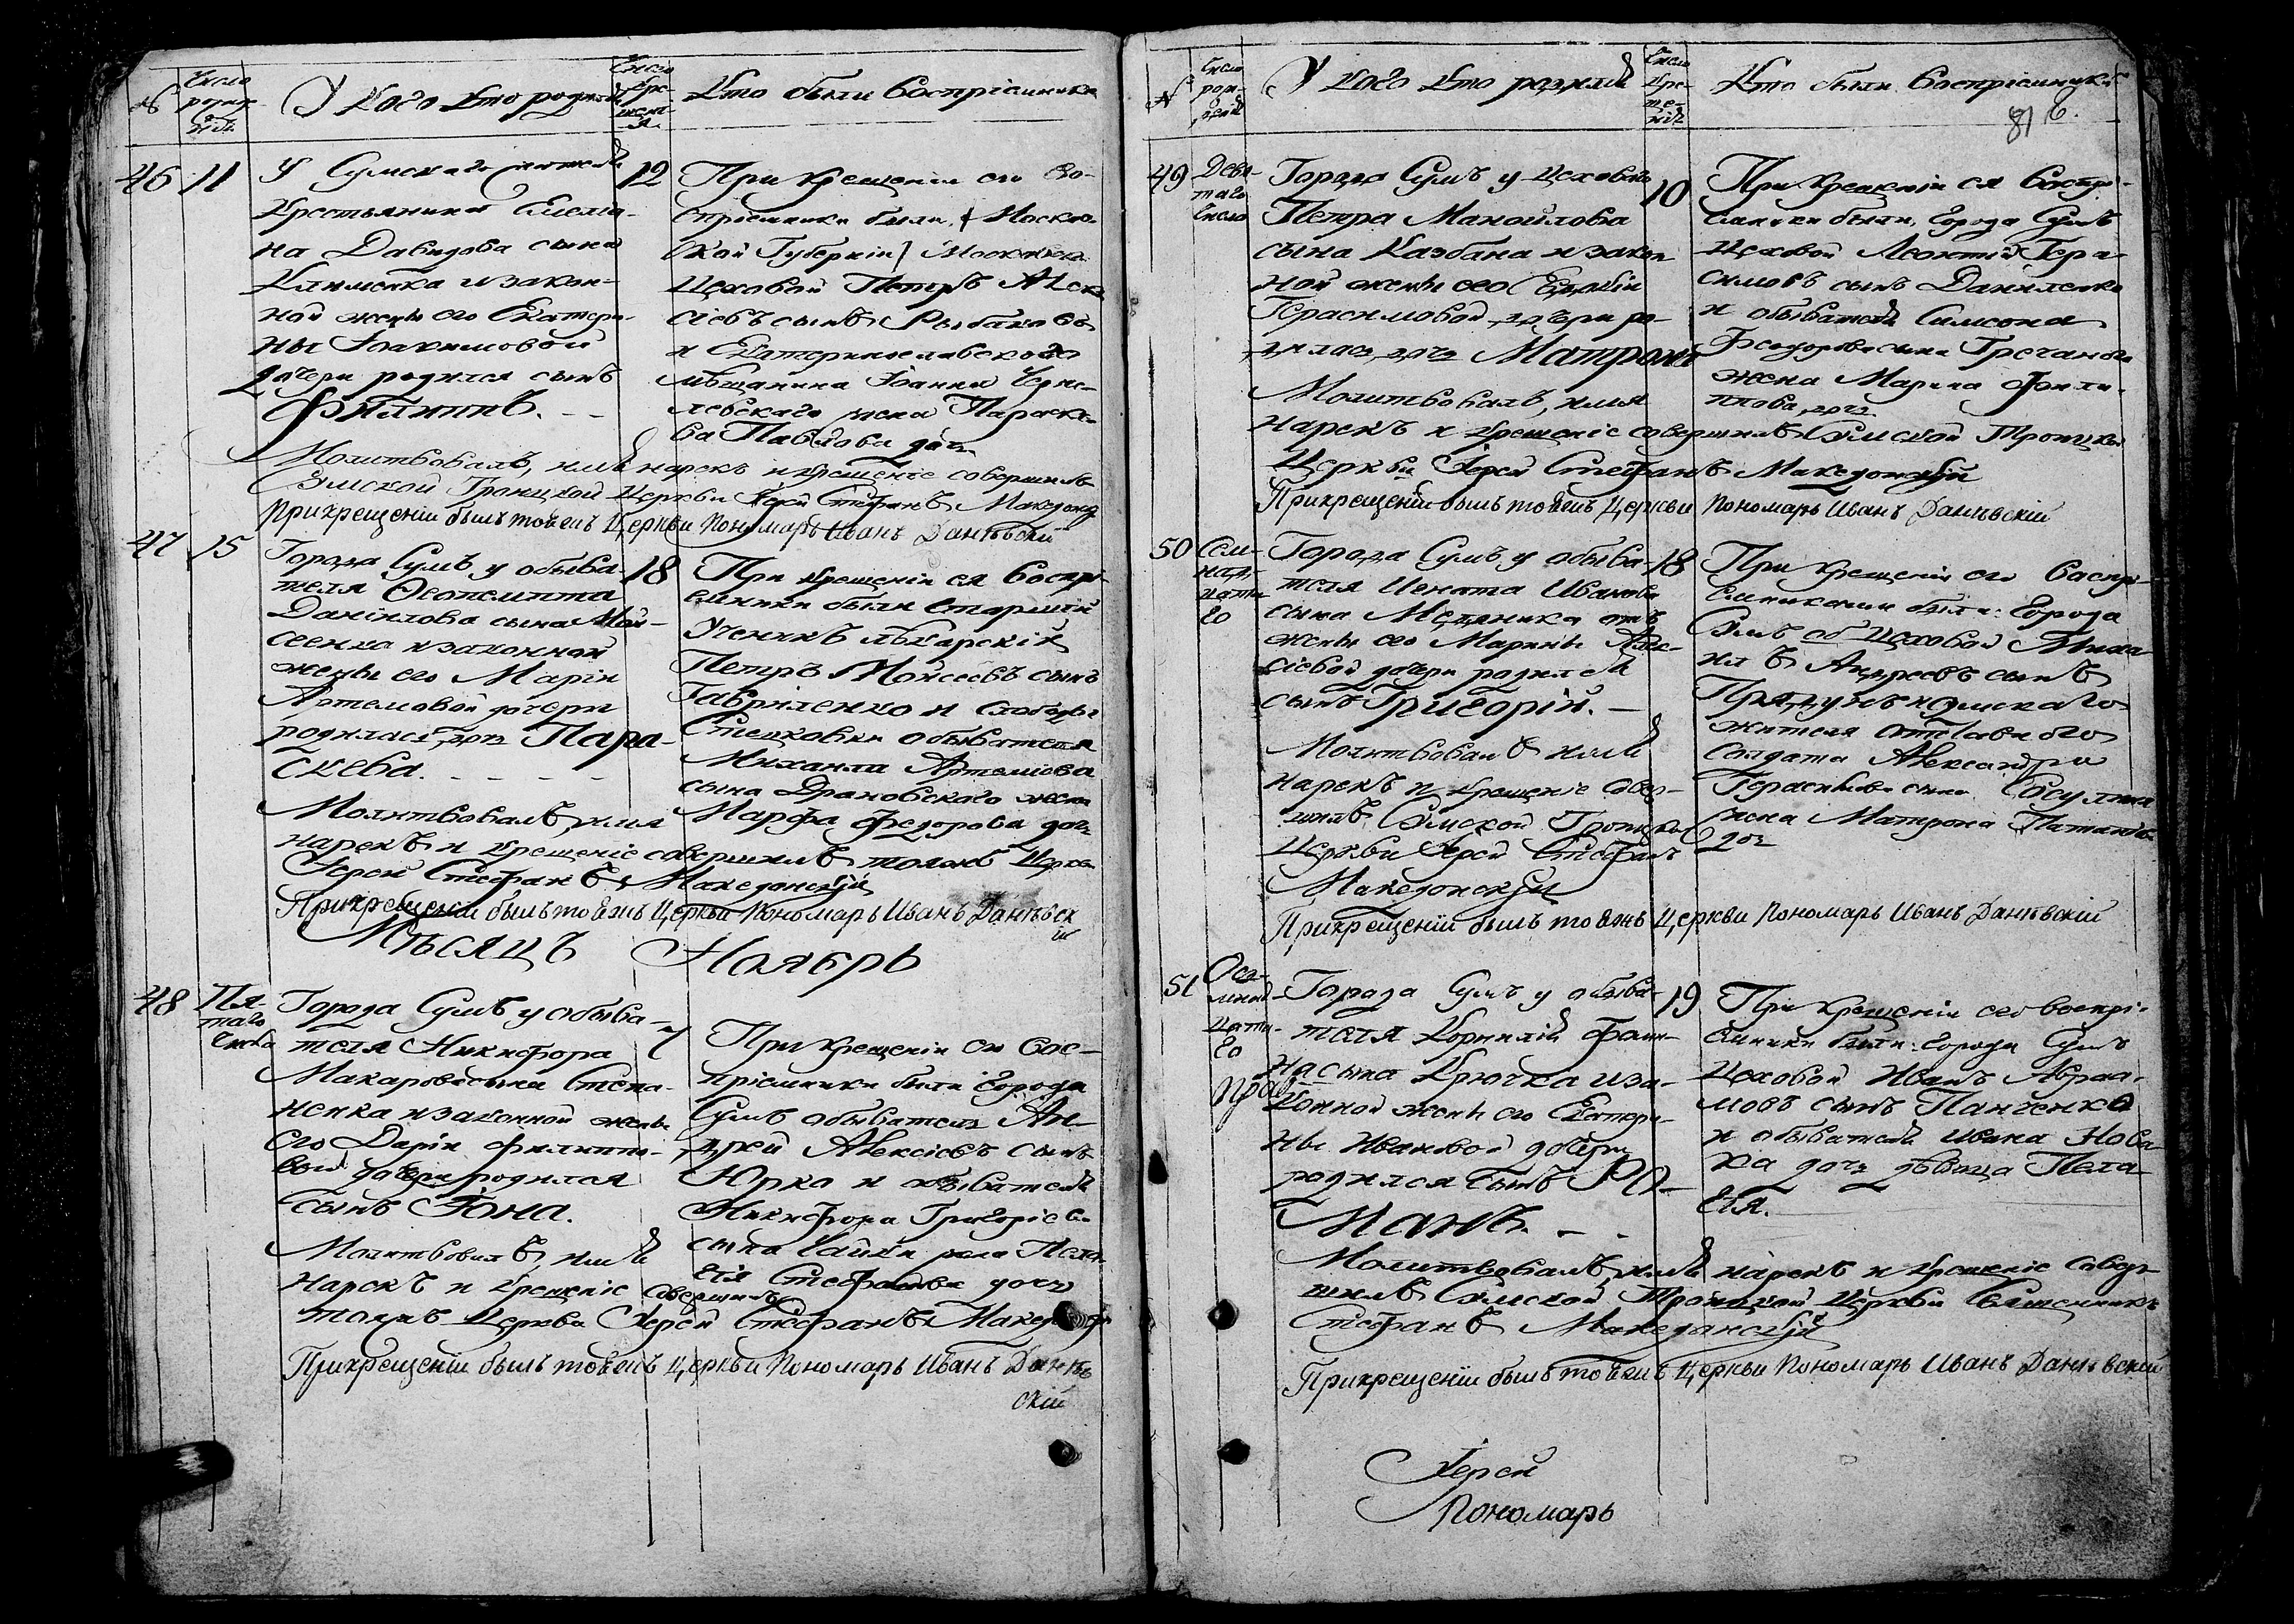 №
Число
рожде-
нія
У кого кто родился
Число
Кре-
щені-
я
Кто были Воспріемники
46
11
У Сумскаго жителя
Крестьянина Емелiа-
на Давидова сына
Клименка и закон-
ной жены его Екатери-
ны Іоакимовой
дочери родился сынъ
Филиппъ.
12
При крещеніи его Во-
спріемники были,
Губерніи
Цеховой Петръ Алек-
сіевъ сынъ Рыбаковъ
и Екатеринославскаго
мѣщанина Іоанна
жена Параске-
ва Павлова дочь
Молитвовалъ, имя нарекъ и крещеніе совершилъ
Сумской Троицкой Церкви Іерей Стефанъ Македонс
При крещеніи былъ тоеяжъ Церкви Пономарь Иванъ Данѣвскій
47
15
Города Сумъ у обыва-
теля Феопемпта
Даніилова сына Мой-
сеенка и законной
жены его Маріи
Артемовой дочери
родилась дочь Пара-
скева.
18
При крещеніи ея Воспрі-
емники были Старшій
Ученикъ лѣкарскій
Петръ Моисеевъ сынъ
Гавриленко и слободы
Стецковки обывателя
Михаила Артеміова
сына Драновскаго жена
Марфа Федорова дочь
Молитвовалъ, имя
нарекъ и крещеніе совершилъ тояжъ Церкви
Іерей Стефанъ Македонскій
При крещеніи былъ тоеяжъ Церкви Пономарь Иванъ Данѣвск
ій
Мѣсяцъ Ноябрь
48
Пя-
таго
Числа
Города Сумъ у обыва-
теля Никифора
Макарова сына Степа-
ненка и законной жены
его Даріи Филиппо-
вой дочери родился
сынъ Іона.
7
При крещеніи его Вос-
пріемники были Города
Сумъ обыватель Ан-
дрей Алексіевъ сынъ
Юрко и обывателя
Никифора Григоріева
сына Чайки жена Пела-
гія Стефанова дочь
Молитвовалъ, имя
нарекъ и крещеніе совершилъ
тояжъ Церкви Іерей Стефанъ
При крещеніи былъ тоеяжъ Церкви Пономарь Иванъ Данѣв
скій
№
Число
рож-
денія
У кого кто родился
Число
Кре-
ще-
нія
Кто были Воспріемники
816.
49
Девя-
таго
Числа
Города Сумъ у Цеховаго
Петра Мануйлова
сына Казбана и закон
ной жены его Евдокіи
Герасимовой дочери ро-
дилась дочь Матрона
10
При крещеніи ея Воспрі-
емники были, Города Сумъ
Цеховой Леонтій Гера-
симовъ сынъ Даниленко
и обывателя Симеона
Феодорова сына Гречанаго
жена Марина Филип-
пова дочь
Молитвовалъ, имя
нарекъ и крещеніе совершилъ Сумской Троицкой
Церкви Іерей Стефанъ Македонскій
При крещеніи былъ тоеяжъ Церкви Пономарь Иванъ Данѣвскій
50
Сем-
над-
цата-
го
Города Сумъ у обыва-
теля Игната Иванова
сына Мельника отъ
жены его Марины Алек-
сіевой дочери родился
сынъ Григорій.
18
При крещеніи его Воспрі-
емниками были: Города
Сумъ Цеховой Миха-
илъ Андреевъ сынъ
и Сумскаго
жителя отставнаго
солдата Александра
Герасимова сына
жена Матрона
дочь
Молитвовалъ имя
нарекъ и крещеніе совер-
шилъ Сумской Троицкой
Церкви Іерей Стефанъ
Македонскій
При крещеніи былъ тоеяжъ Церкви Пономарь Иванъ Данѣвскій
51
Осм-
над-
цата-
го
Города Сумъ у обыва-
теля Корнилія Фоми-
на сына Крючка и за-
конной жены его Екатери-
ны Ивановой дочери
родился сынъ Ро-
манъ.
19
При крещеніи его воспрі-
емники были: Города Сумъ
Цеховой Иванъ Авраа-
мовъ сынъ Панченко
и обывателя Ивана Нова-
ка дочь дѣвица Пела-
гія.
Молитвовалъ, имя нарекъ и крещеніе совер-
шилъ Сумской Троицкой Церкви Священникъ
Стефанъ Македонскій
При крещеніи былъ тоеяжъ Церкви Пономарь Иванъ Данѣвскій
Іерей
Пономарь